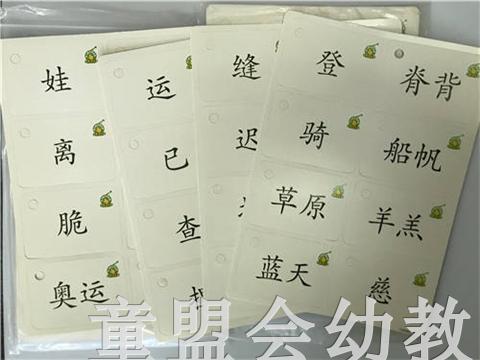 娃
离
脆
奥运
运
已
查
缝
迟
登 脊背
骑 船帆
草原 羊羔
蓝天 慈
童盟会幼教